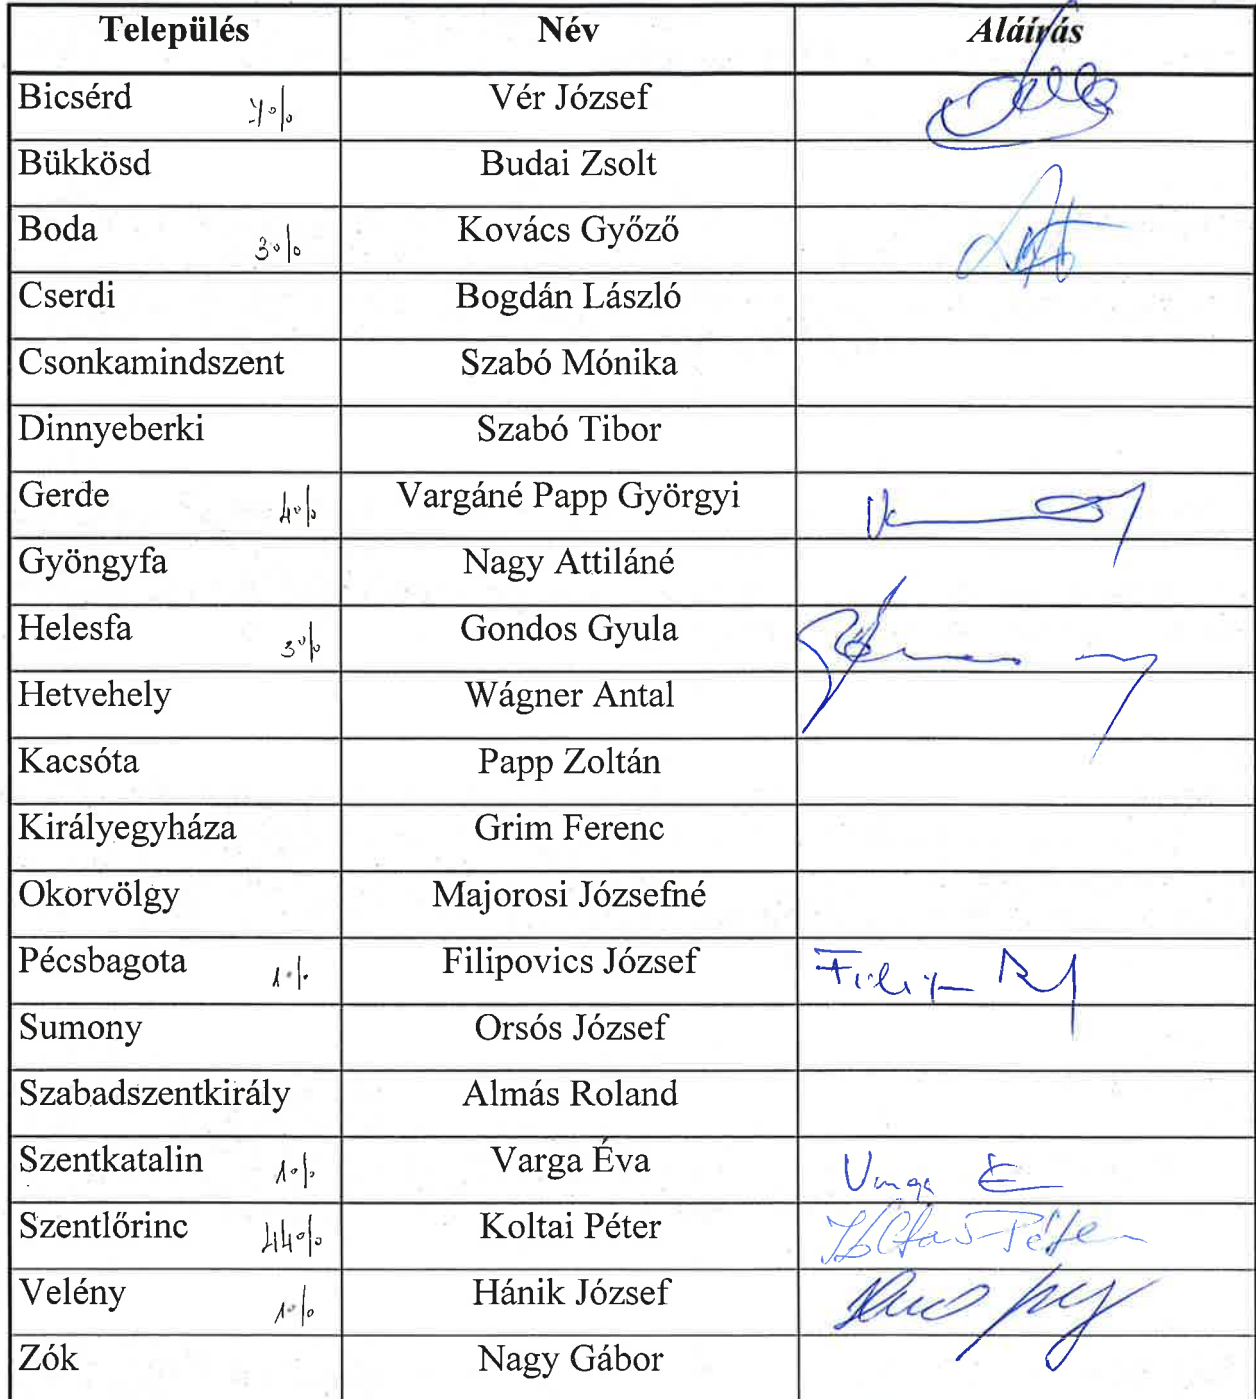 Település Név Aláírás
Bicsérd 7% Vér József
Bükkösd Budai Zsolt
Boda 3% Kovács Győző
Cserdi Bogdán László
Csonkamindszent Szabó Mónika
Dinnyeberki Szabó Tibor
Gerde 4% Vargáné Papp Györgyi
Gyöngyfa Nagy Attiláné
Helesfa 3% Gondos Gyula
Hetvehely Wágner Antal
Kacsóta Papp Zoltán
Királyegyháza Grim Ferenc
Okorvölgy Majorosi Józsefné
Pécsbagota 1% Filipovics József
Sumony Orsós József
Szabadszentkirály Almás Roland
Szentkatalin 1% Varga Éva Varga É
Szentlőrinc 44% Koltai Péter Koltai Péter
Velény 1% Hánik József
Zók Nagy Gábor